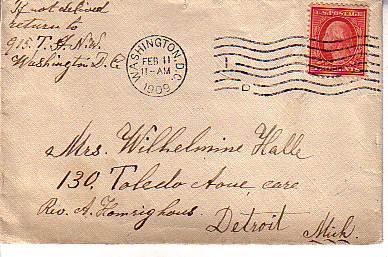 If not delived
return to
915. T. St. N.W.
Washington D.C.
WASHINGTON, D.C.
FEB 11
11-AM
1909
U.S. POSTAGE
CENTS
D
Mrs. Wilhelmine Halle
130. Toledo Aove, care
Rev. A. Homrighous.
Detroit
Mich.